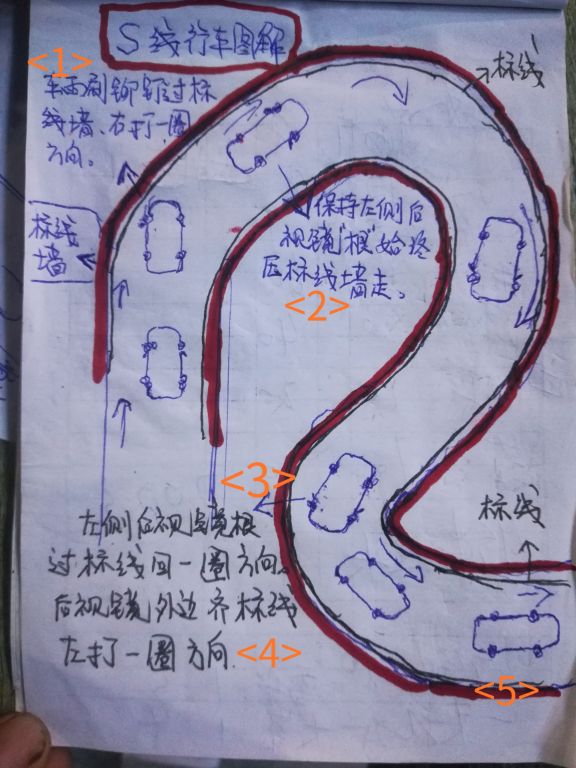 S 线行车图解
<1>
标线
车雨刷铆钉过标
线墙、右打一圈
方向。
标线
墙
保持左侧后
视镜"根"始终
压标线墙走。
<2>
<3>
左侧后视镜根
过标线回一圈方向。
后视镜外边齐标线
左打一圈方向.
<4>
标线
<5>